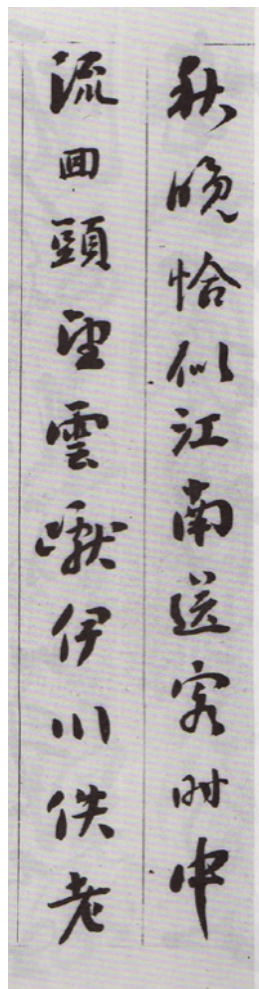 秋晚恰似江南送客时中
流囬頭望雲巘伊川佚老